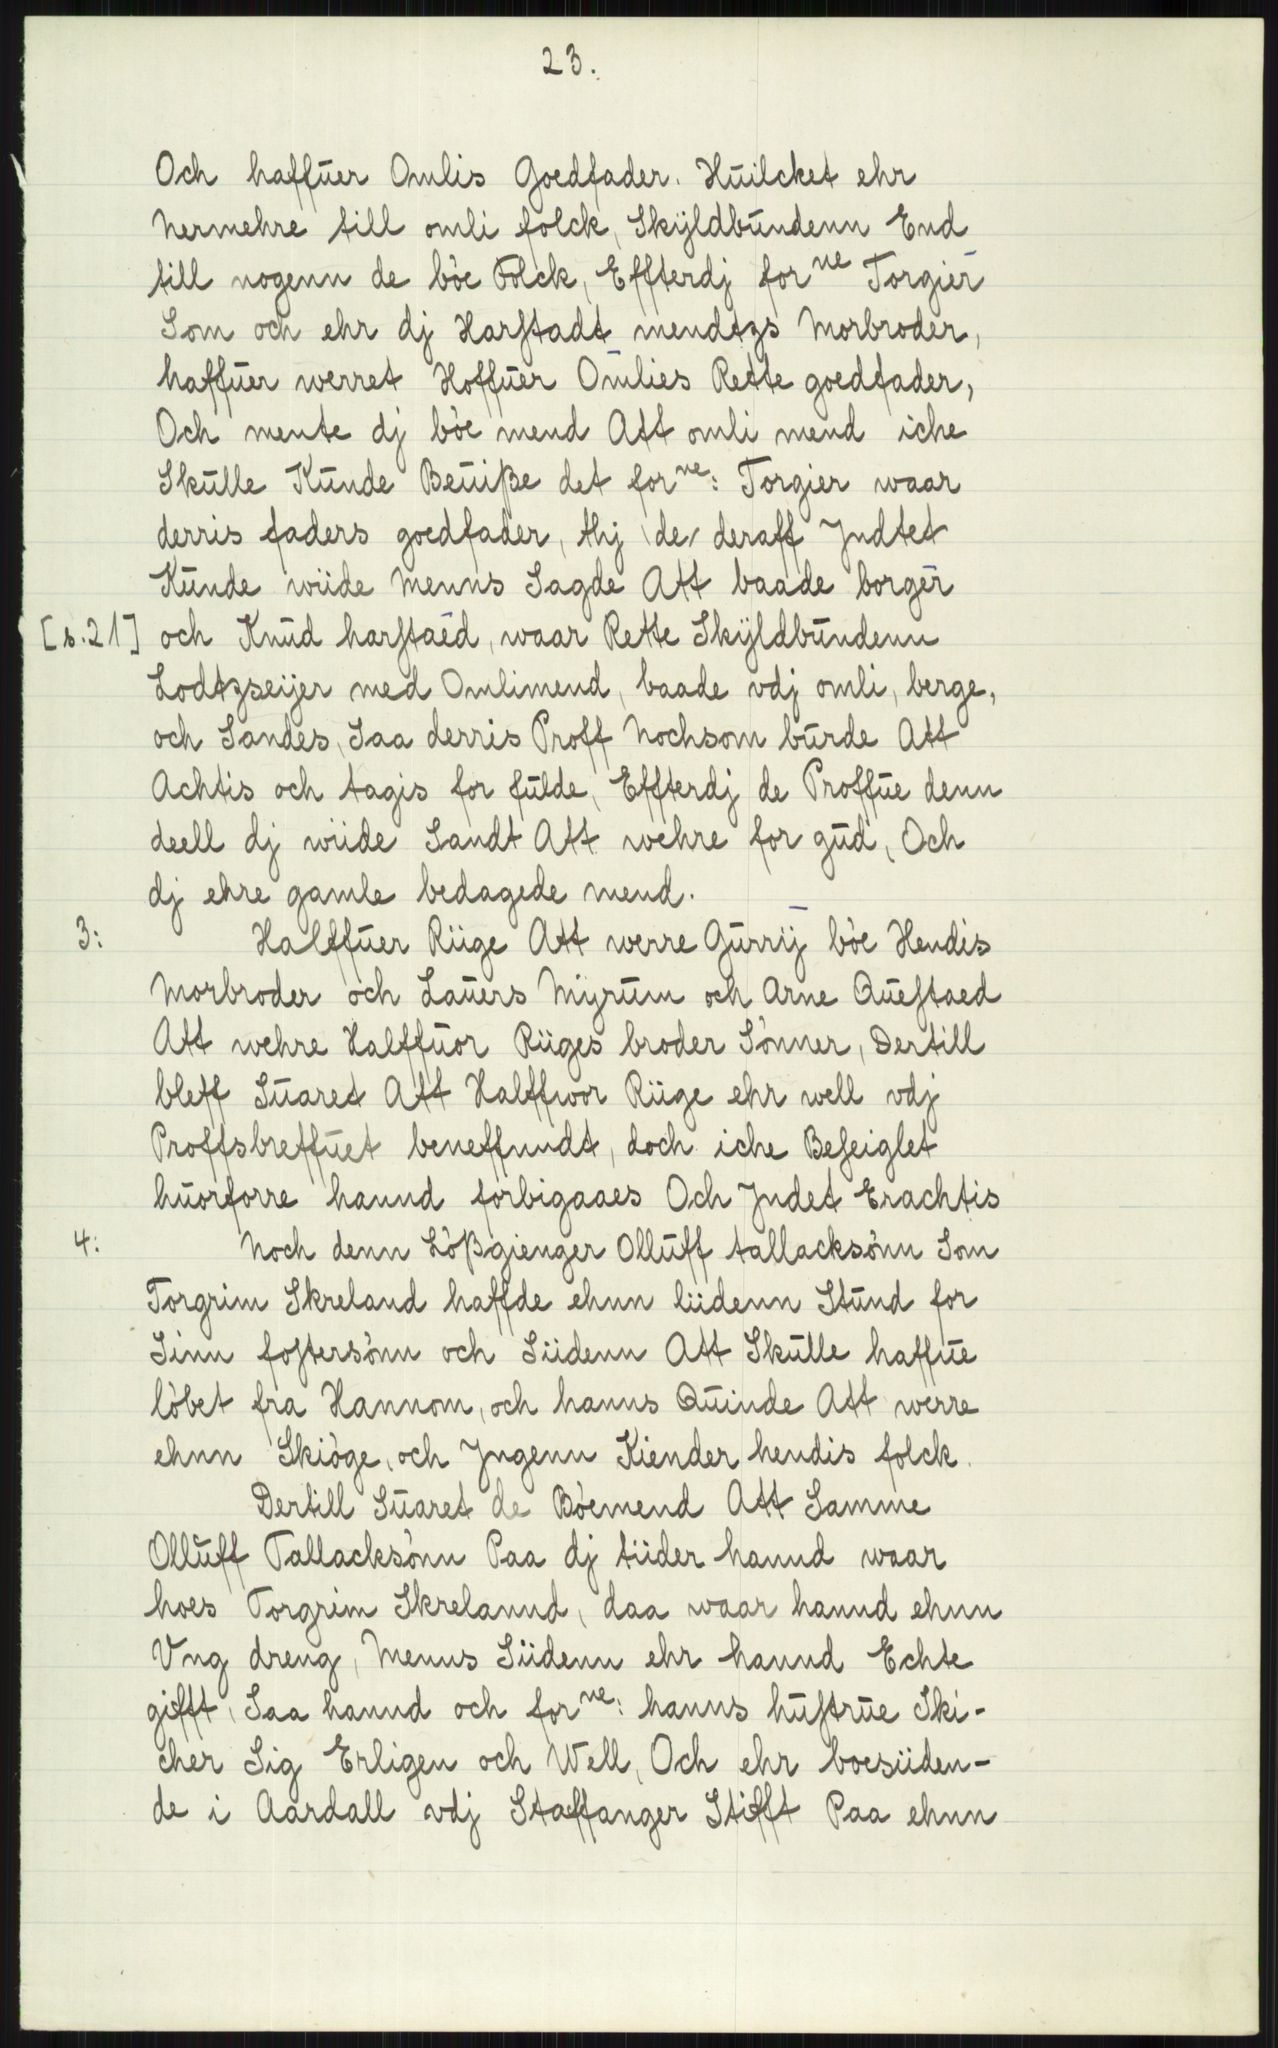 23.
Och haffuer Omlis Goedfader. Huilcket ehr
Nermehre till omli folck, Skÿldbundenn End
till nogenn de bòe Folck, Effterdj for ne Torgier
Som och ehr dj Harstadt mendtzs Morbroder,
haffuer werret Hoffuer Omlies Rette goedfader,
Och mente dj bòe mend Att omli mend iche
Skulle Kunde Beuiße det for ne: Torgier waar
derris faders goedfader, thj de deraff Jndtet
Kunde wiide Menns Sagde Att baade borger
[s.21] och Knud harstaed, waar Rette Skÿldbundenn
Lodtzseijer med Omlimend, baade vdj omli, berge,
och Sandes, Saa derris Proff Nochsom burde Att
Achtis och tagis for fulde, Effterdj de Proffue denn
deell dj wiide Sandt Att wehre for gud, Och
dj ehre gamle bedagede mend.
3: Halffuer Riige Att werre Gurrij bòe Hendis
Morbroder och Lauers Mijrum och Arne Questaed
Att wehre Halffuor Riiges broder Sònner, Dertill
bleff Suaret Att Halffwor Riige ehr well vdj
Proffsbreffuet beneffundt, doch iche Beseiglet
huorforre hannd forbigaaes Och Jndet Erachtis
4: Noch denn Lòßgienger Olluff tallacksònn Som
Torgrim Skreland haffde ehnn liidenn Stund for
Sinn fostersònn och Siidenn Att Skulle haffue
lòbet fra Hannom, och hanns Quinde Att werre
ehnn Skiòge, och Jngenn Kiender hendis folck.
Dertill Suaret de Bòemend Att Samme
Olluff Tallacksònn Paa dj tiider hannd waar
hoes Torgrim Skrelannd, daa waar hannd ehnn
Vng dreng, Menns Siidenn ehr hannd Echte
gifft, Saa hannd och for ne: hanns hustrue Ski-
cher Sig Erligen och Well, Och ehr boesiiden-
de i Aardall vdj Staffanger Stifft Paa ehnn